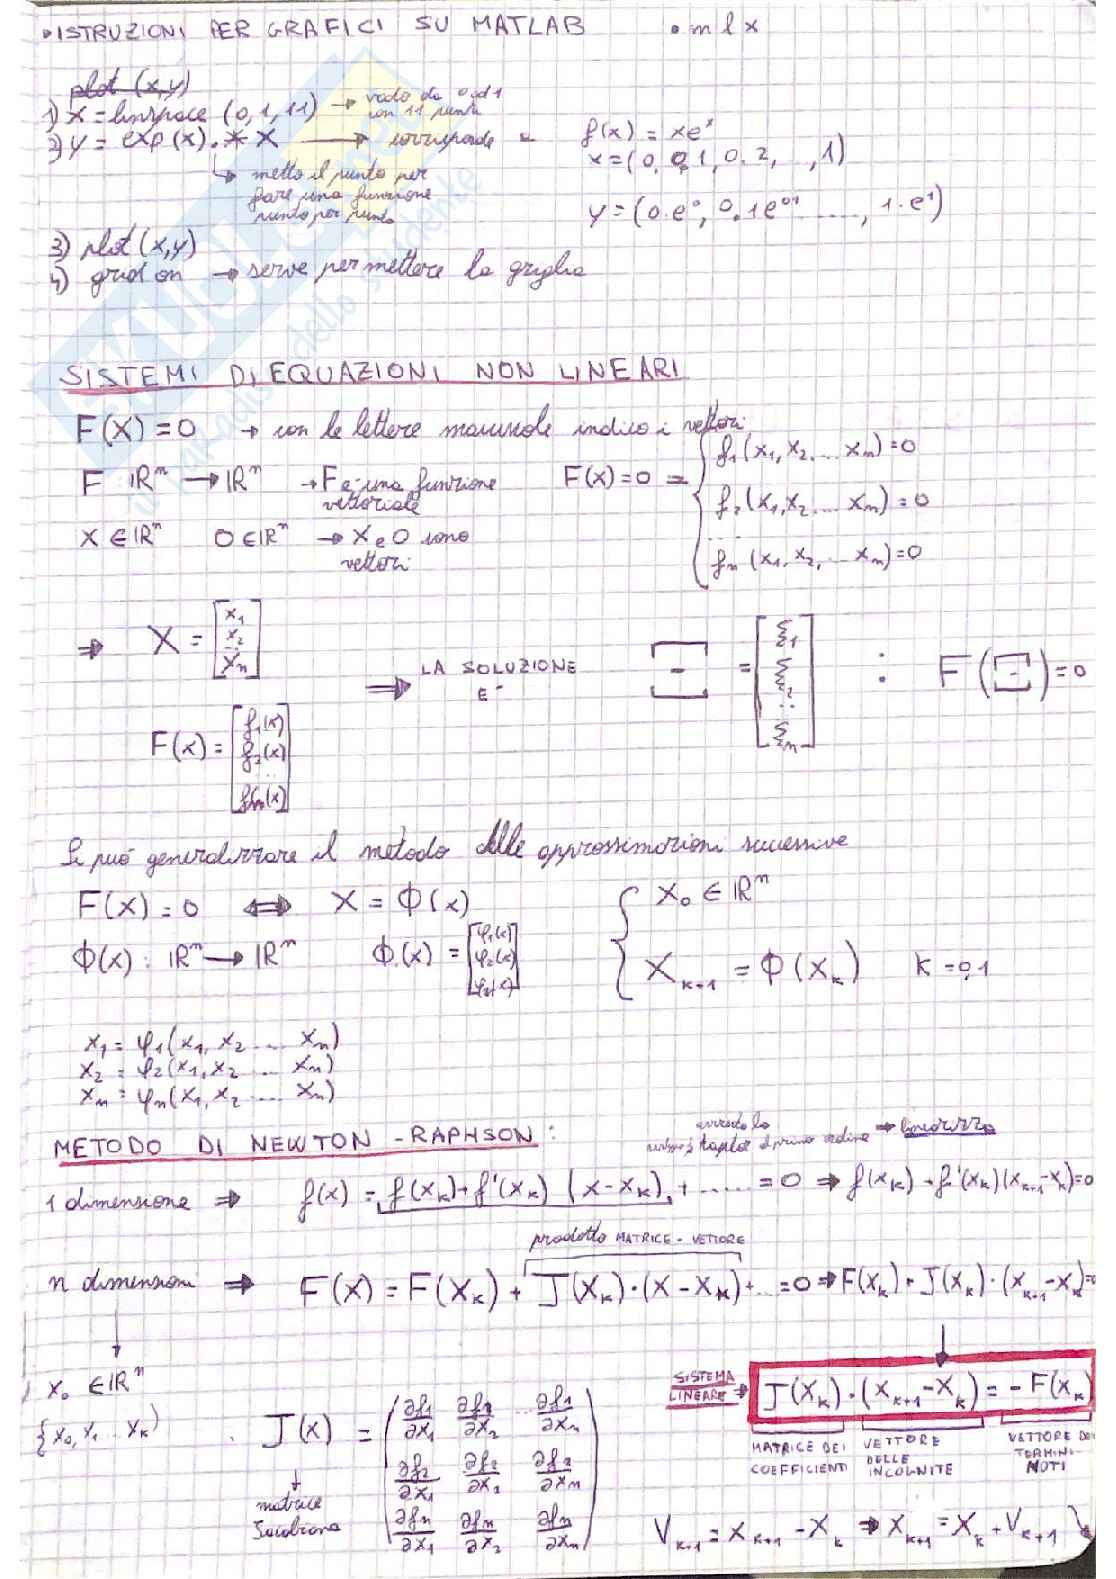 • ISTRUZIONI PER GRAFICI SU MATLAB • m l x
plot (x,y)
1) x = linspace (0, 1, 11) → vado da 0 ad 1 con 11 punti
2) y = exp (x) .* x → corrisponde a f(x) = xe^x
x = (0, 0,1, 0.2, .., 1)
↳ metto il punto per fare una funzione punto per punto
y = (0·e^0, 0.1e^0.1 ......, 1·e^1)
3) plot (x,y)
4) grid on → serve per mettere la griglia
SISTEMI DI EQUAZIONI NON LINEARI
F(X) = 0 → con le lettere maiuscole indico i vettori
F: ℝ^n → ℝ^n → F è una funzione vettoriale F(x) = 0 = { f_1(x_1, x_2, ... x_n) = 0
f_2(x_1, x_2, ... x_n) = 0
...
f_n(x_1, x_2, ... x_n) = 0
X ∈ ℝ^n 0 ∈ ℝ^n → X e 0 sono vettori
⇒ X = [x_1 x_2 .. x_n]
⇒ LA SOLUZIONE E' Ξ = [ξ_1 ξ_2 .. ξ_n] : F(Ξ) = 0
F(x) = [f_1(x) f_2(x) ... f_n(x)]
Si può generalizzare il metodo delle approssimazioni successive
F(X) = 0 ⇔ X = Φ(x) { X_0 ∈ ℝ^n
Φ(x): ℝ^n → ℝ^n Φ(x) = [φ_1(x) φ_2(x)
X_{k+1} = Φ(X_k) K = 0,1
x_1 = φ_1(x_1, x_2 ... x_n)
x_2 = φ_2(x_1, x_2 ... x_n)
x_n = φ_n(x_1, x_2 ... x_n)
METODO DI NEWTON - RAPHSON:
Taylor al primo ordine ⇒ linearizzo
1 dimensione ⇒ f(x) = f(x_k) + f'(x_k) (x - x_k) + ...... = 0 ⇒ f(x_k) + f'(x_k)(x_{k+1} - x_k) = 0
prodotto MATRICE - VETTORE
n dimensioni ⇒ F(X) = F(X_k) + J(X_k)·(X - X_k) + ... = 0 ⇒ F(X_k) + J(X_k)·(X_{k+1} - X_k) = 0
X_0 ∈ ℝ^n
{x_0, x_1 ... x_k}
SISTEMA LINEARE ⇒ J(X_k)·(X_{k+1} - X_k) = - F(X_k)
MATRICE DEI COEFFICIENTI
VETTORE DELLE INCOGNITE
VETTORE DEI TERMINI NOTI
J(x) = ( ∂f_1/∂x_1 ∂f_1/∂x_2 ... ∂f_1/∂x_n
∂f_2/∂x_1 ∂f_2/∂x_2 ∂f_2/∂x_n
∂f_n/∂x_1 ∂f_n/∂x_2 ∂f_n/∂x_n )
↓ matrice Jacobiana
V_{k+1} = X_{k+1} - X_k ⇒ X_{k+1} = X_k + V_{k+1}